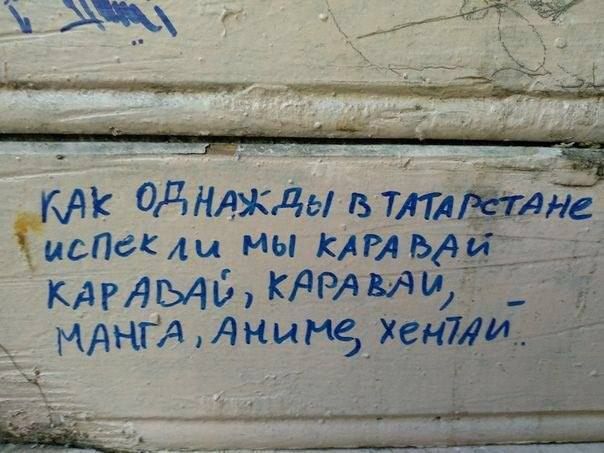 КАК ОДНАЖДЫ В ТАТАРСТАНЕ
ИСПЕКЛИ МЫ КАРАВАЙ
КАРАВАЙ, КАРАВАЙ,
МАНГА, АНИМЕ, ХЕНТАЙ..